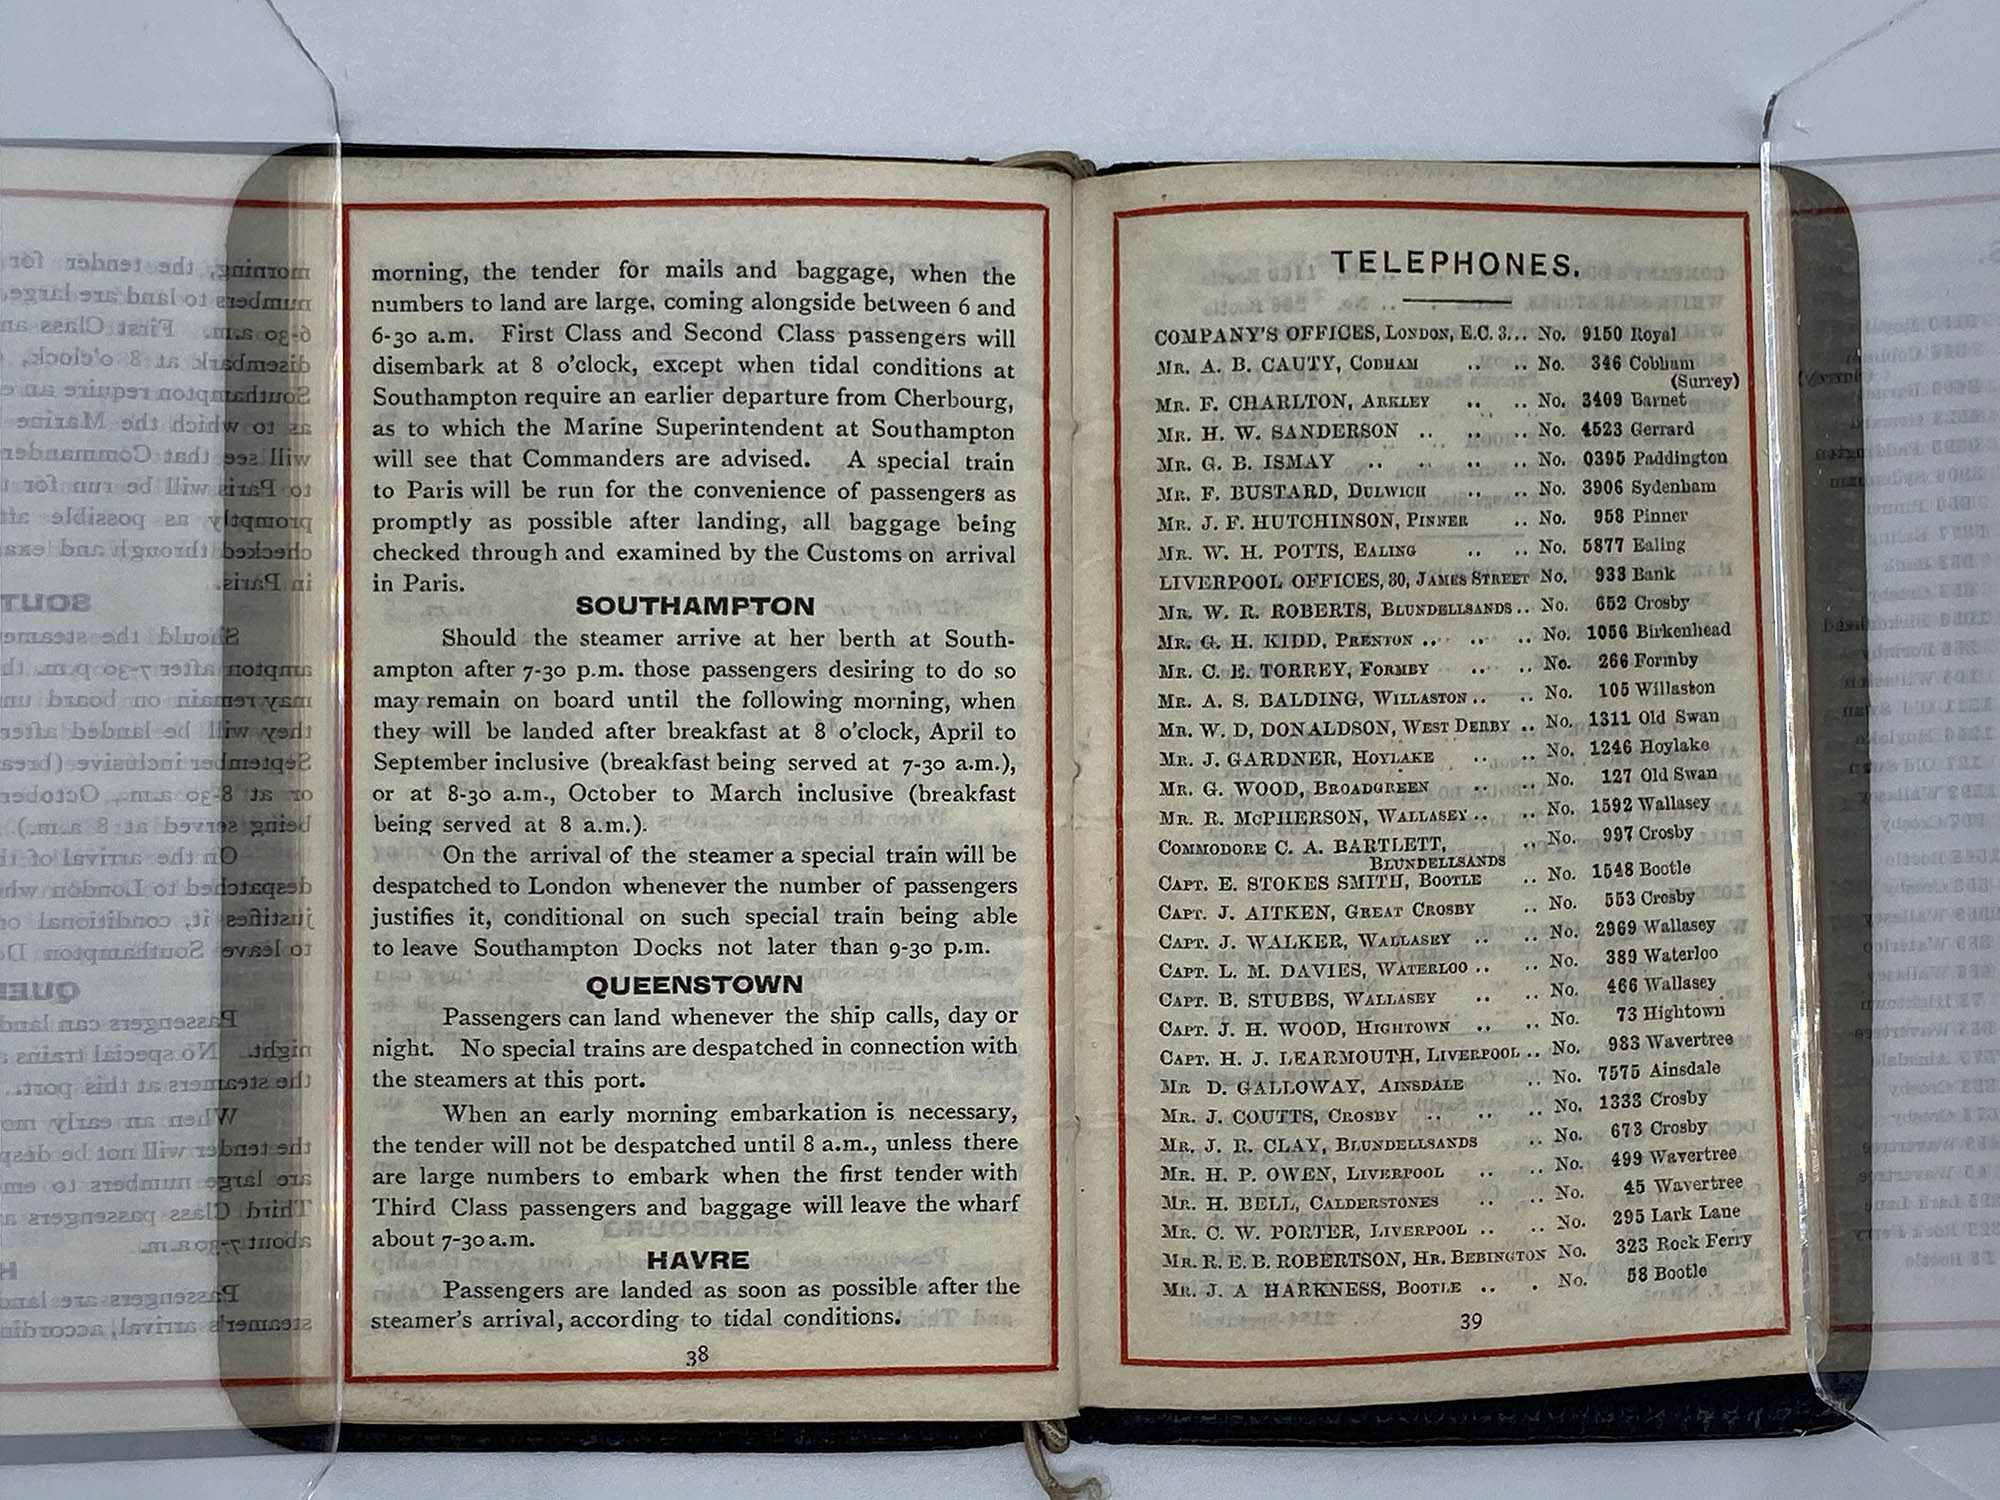 morning, the tender for mails and baggage, when the
numbers to land are large, coming alongside between 6 and
6-30 a.m. First Class and Second Class passengers will
disembark at 8 o'clock, except when tidal conditions at
Southampton require an earlier departure from Cherbourg,
as to which the Marine Superintendent at Southampton
will see that Commanders are advised. A special train
to Paris will be run for the convenience of passengers as
promptly as possible after landing, all baggage being
checked through and examined by the Customs on arrival
in Paris.
SOUTHAMPTON
Should the steamer arrive at her berth at South-
ampton after 7-30 p.m. those passengers desiring to do so
may remain on board until the following morning, when
they will be landed after breakfast at 8 o'clock, April to
September inclusive (breakfast being served at 7-30 a.m.),
or at 8-30 a.m., October to March inclusive (breakfast
being served at 8 a.m.).
On the arrival of the steamer a special train will be
despatched to London whenever the number of passengers
justifies it, conditional on such special train being able
to leave Southampton Docks not later than 9-30 p.m.
QUEENSTOWN
Passengers can land whenever the ship calls, day or
night. No special trains are despatched in connection with
the steamers at this port.
When an early morning embarkation is necessary,
the tender will not be despatched until 8 a.m., unless there
are large numbers to embark when the first tender with
Third Class passengers and baggage will leave the wharf
about 7-30 a.m.
HAVRE
Passengers are landed as soon as possible after the
steamer's arrival, according to tidal conditions.
38
TELEPHONES.
COMPANY'S OFFICES, LONDON, E.C. 3... No. 9150 Royal
MR. A. B. CAUTY, COBHAM .. .. No. 346 Cobham
(Surrey)
MR. F. CHARLTON, ARKLEY .. .. No. 3409 Barnet
MR. H. W. SANDERSON .. .. .. No. 4523 Gerrard
MR. G. B. ISMAY .. .. .. .. No. 0395 Paddington
MR. F. BUSTARD, DULWICH .. .. No. 3906 Sydenham
MR. J. F. HUTCHINSON, PINNER .. No. 958 Pinner
MR. W. H. POTTS, EALING .. .. No. 5877 Ealing
LIVERPOOL OFFICES, 30, JAMES STREET No. 933 Bank
MR. W. R. ROBERTS, BLUNDELLSANDS .. No. 652 Crosby
MR. G. H. KIDD, PRENTON .. .. .. No. 1056 Birkenhead
MR. C. E. TORREY, FORMBY .. .. No. 266 Formby
MR. A. S. BALDING, WILLASTON .. .. No. 105 Willaston
MR. W. D, DONALDSON, WEST DERBY .. No. 1311 Old Swan
MR. J. GARDNER, HOYLAKE .. .. No. 1246 Hoylake
MR. G. WOOD, BROADGREEN .. .. No. 127 Old Swan
MR. R. McPHERSON, WALLASEY .. .. No. 1592 Wallasey
COMMODORE C. A. BARTLETT, .. No. 997 Crosby
BLUNDELLSANDS
CAPT. E. STOKES SMITH, BOOTLE .. No. 1548 Bootle
CAPT. J. AITKEN, GREAT CROSBY .. No. 553 Crosby
CAPT. J. WALKER, WALLASEY .. .. No. 2969 Wallasey
CAPT. L. M. DAVIES, WATERLOO .. .. No. 389 Waterloo
CAPT. B. STUBBS, WALLASEY .. .. No. 466 Wallasey
CAPT. J. H. WOOD, HIGHTOWN .. .. No. 73 Hightown
CAPT. H. J. LEARMOUTH, LIVERPOOL .. No. 983 Wavertree
MR D. GALLOWAY, AINSDALE .. No. 7575 Ainsdale
MR. J. COUTTS, CROSBY .. .. .. No. 1333 Crosby
MR. J. R. CLAY, BLUNDELLSANDS .. No. 673 Crosby
MR. H. P. OWEN, LIVERPOOL .. .. No. 499 Wavertree
MR. H. BELL, CALDERSTONES .. .. No. 45 Wavertree
MR. C. W. PORTER, LIVERPOOL .. .. No. 295 Lark Lane
MR. R. E. B. ROBERTSON, HR. BEBINGTON No. 323 Rock Ferry
MR. J. A HARKNESS, BOOTLE .. . No. 58 Bootle
39